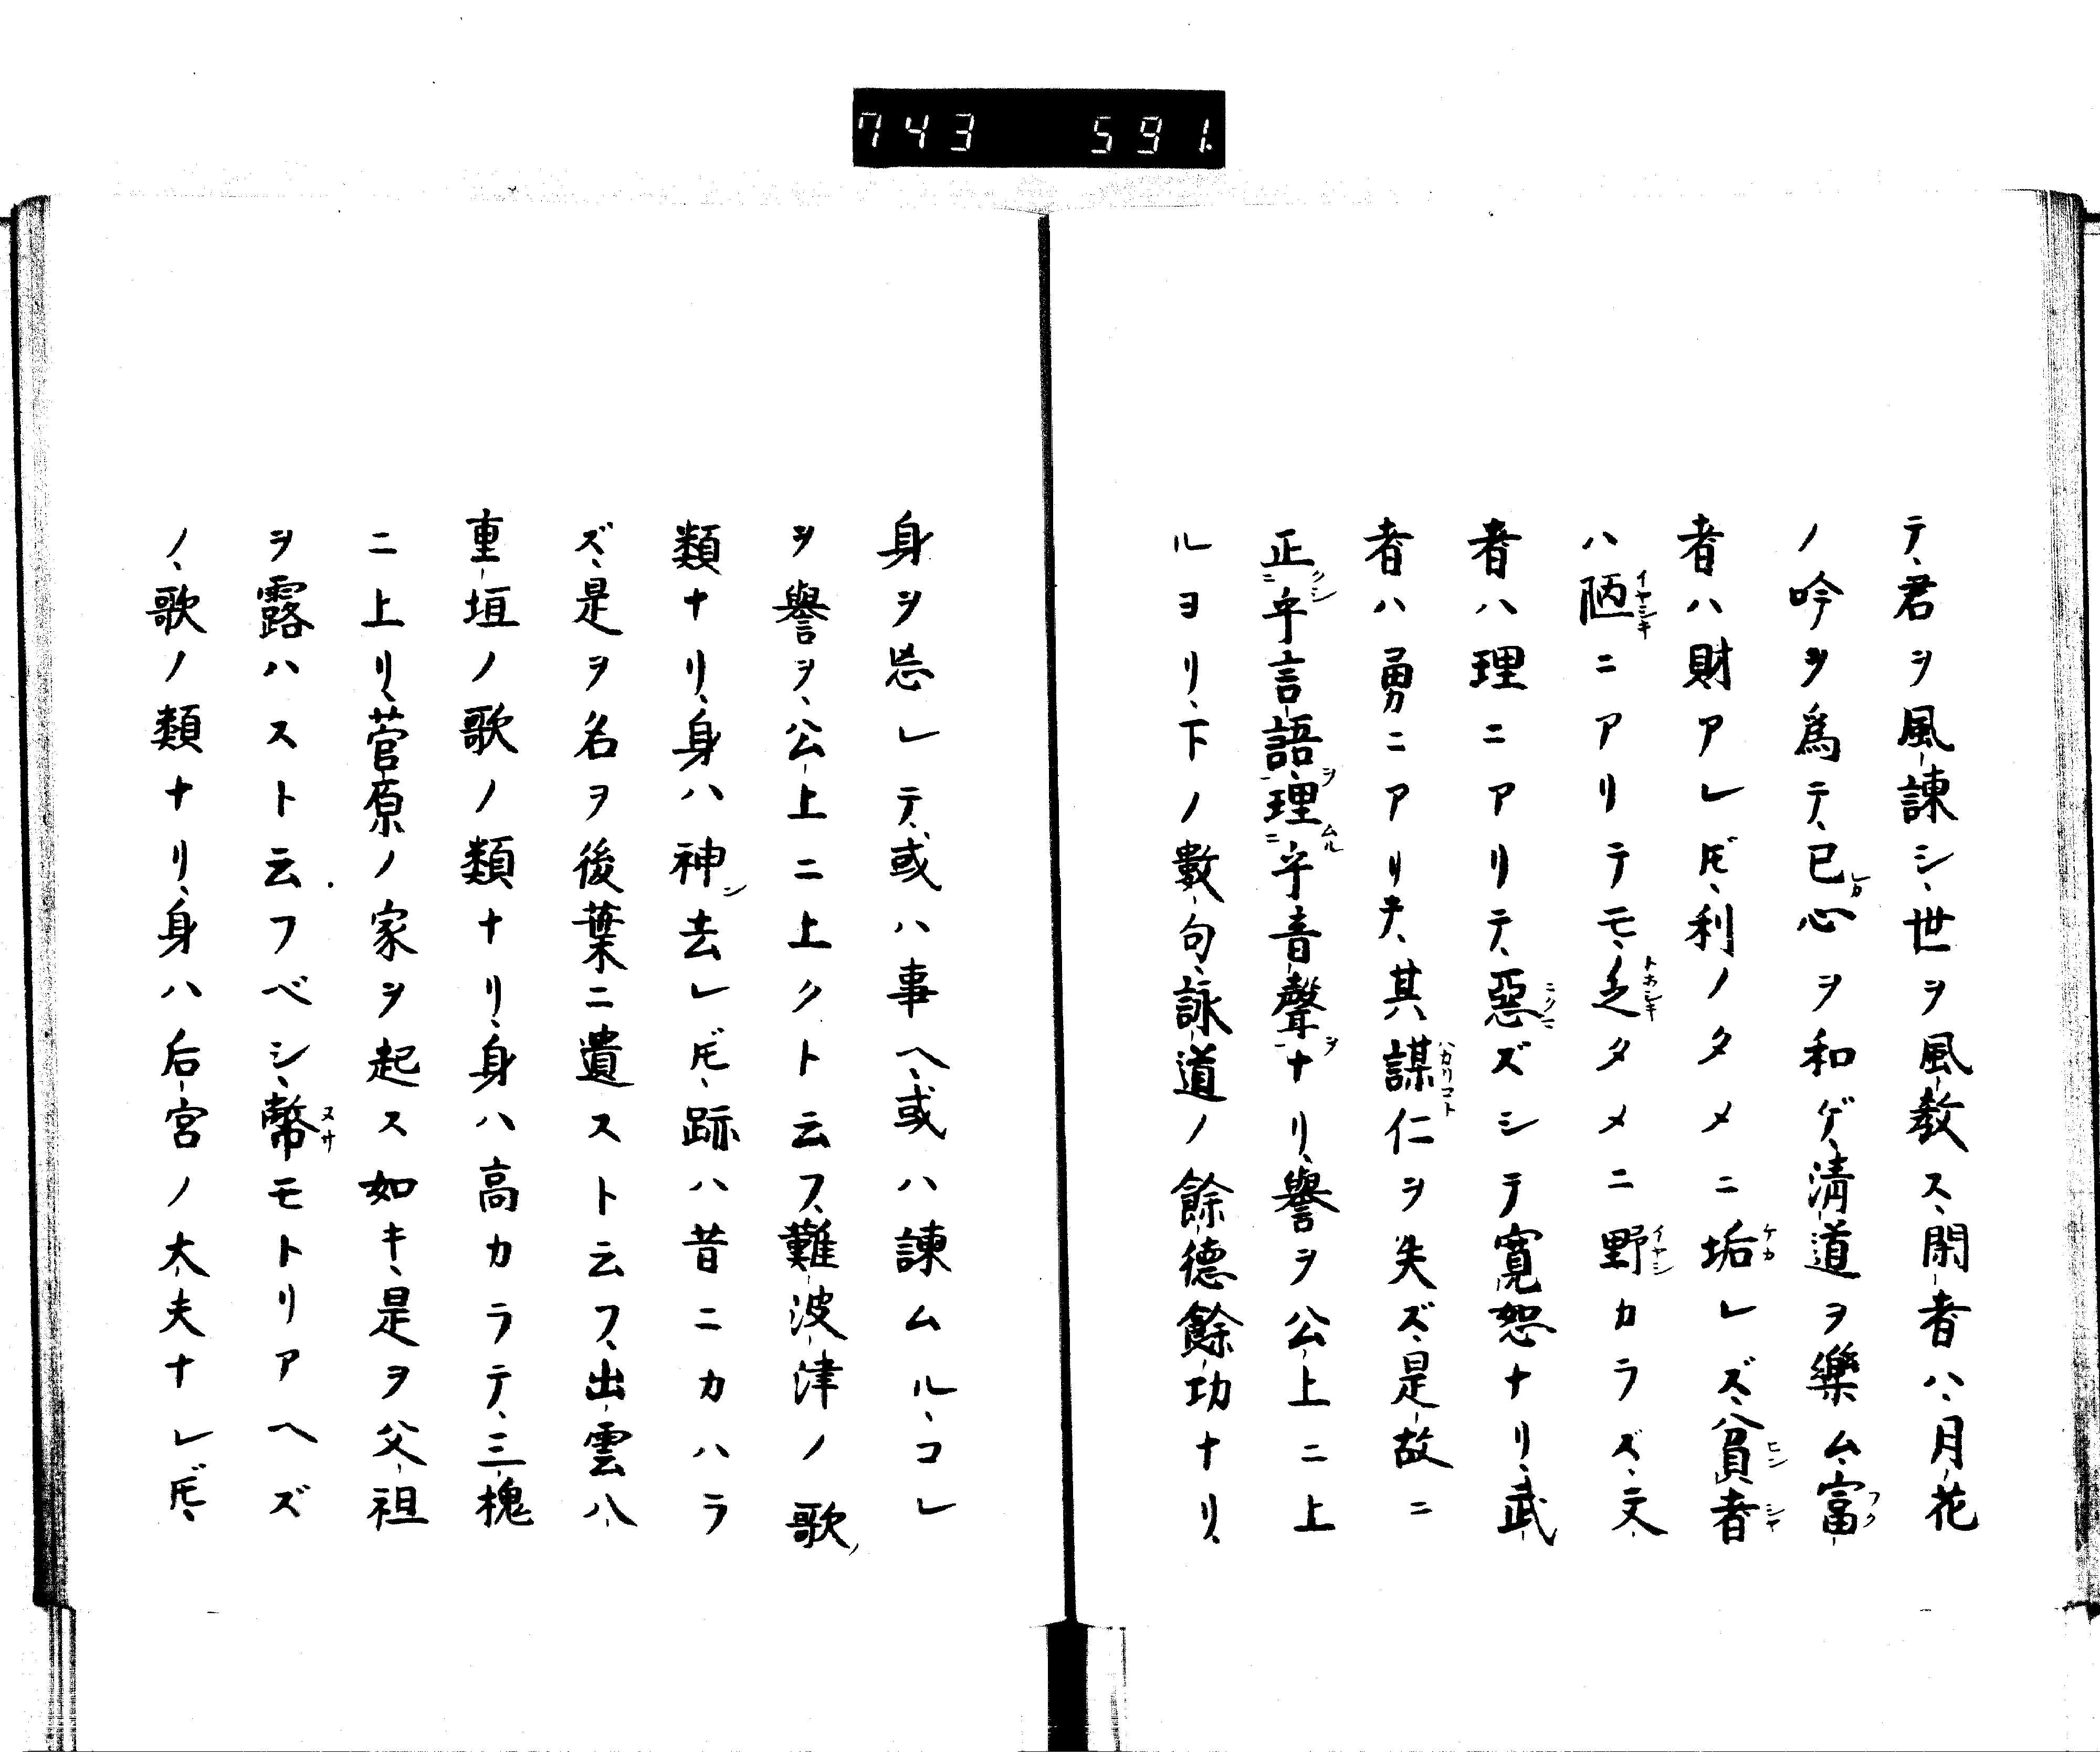 743 591
テ、君ヲ風諫シ、世ヲ風教ス、閑者ハ、月花
ノ吟ヲ爲テ、已心ヲ和ゲ、清道ヲ樂ム、富
者ハ財アレ𪜈、利ノタメニ垢レズ、貧者
ハ陋ニアリテモ、乏タメニ野カラズ、文
者ハ理ニアリテ、惡ズシテ寛恕ナリ、武
者ハ勇ニアリキ、其謀仁ヲ失ズ、是故ニ
正乎言語、理乎音聲ナリ、譽ヲ公上ニ上
ルヨリ、下ノ數句、詠道ノ餘德餘功ナリ、
身ヲ忘レテ、或ハ事ヘ、或ハ諫ムル、コレ
ヲ譽ヲ、公上ニ上クト云フ、難波津ノ歌ノ
類ナリ、身ハ神去レ𪜈、跡ハ昔ニカハラ
ズ、是ヲ名ヲ後葉ニ遺スト云フ、出雲八
重垣ノ歌ノ類ナリ、身ハ高カラテ、三槐
ニ上リ、菅原ノ家ヲ起ス如キ、是ヲ父祖
ヲ露ハスト云フベシ、幣モトリアヘズ
ノ、歌ノ類ナリ、身ハ后宮ノ大夫ナレ𪜈、